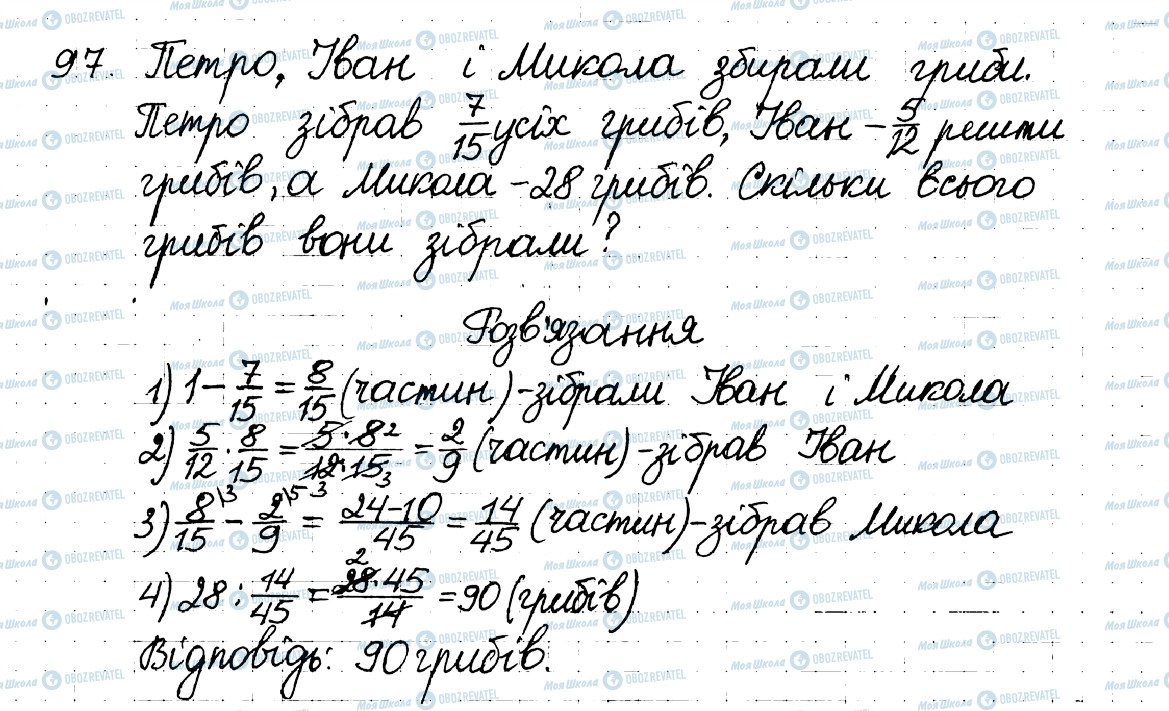 97. Петро, Іван і Микола збирали гриби.
Петро зібрав 7/15 усіх грибів, Іван – 5/12 решти
грибів, а Микола – 28 грибів. Скільки всього
грибів вони зібрали?
Розв'язання
1) 1 – 7/15 = 8/15 (частин) – зібрали Іван і Микола
2) 5/12 · 8/15 = 5·8 2/12·15 3 3 = 2/9 (частин) – зібрав Іван
3) 8/15 \3 – 2/9 \5 = 24–10/45 = 14/45 (частин) – зібрав Микола
4) 28 : 14/45 = 2 28·45/14 = 90 (грибів)
Відповідь: 90 грибів.
Моя Школа OBOZREVATEL